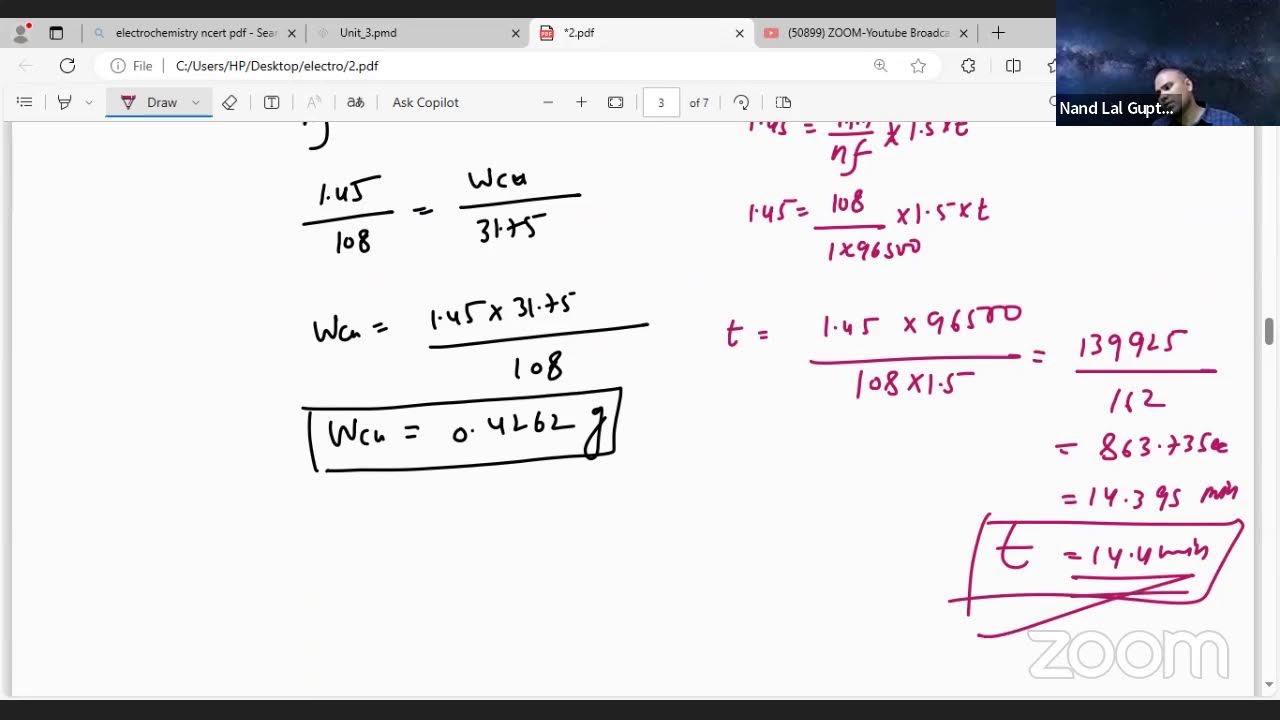 electrochemistry ncert pdf - Sear
Unit_3.pmd
*2.pdf
(50899) ZOOM-Youtube Broadca
File
C:/Users/HP/Desktop/electro/2.pdf
Draw
Ask Copilot
3 of 7
Nand Lal Gupt...
1.45 / 108 = Wcu / 31.75
Wcu = 1.45 x 31.75 / 108
Wcu = 0.4262 g
1.45 = / nf x 1.5 x t
1.45 = 108 / 1x96500 x 1.5 x t
t = 1.45 x 96500 / 108 x 1.5 = 139925 / 162
= 863.73 Sec
= 14.395 min
t = 14.4 min
zoom